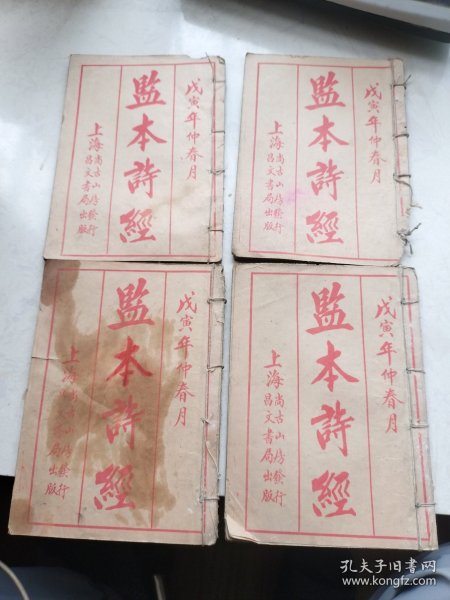 戊寅年仲春月
監本詩經
上海尚古山房發行
昌文書局出版
戊寅年仲春月
監本詩經
上海尚古山房發行
昌文書局出版
戊寅年仲春月
監本詩經
上海尚古山房發行
昌文書局出版
戊寅年仲春月
監本詩經
上海尚古山房發行
昌文書局出版
孔夫子旧书网
www.kongfz.com